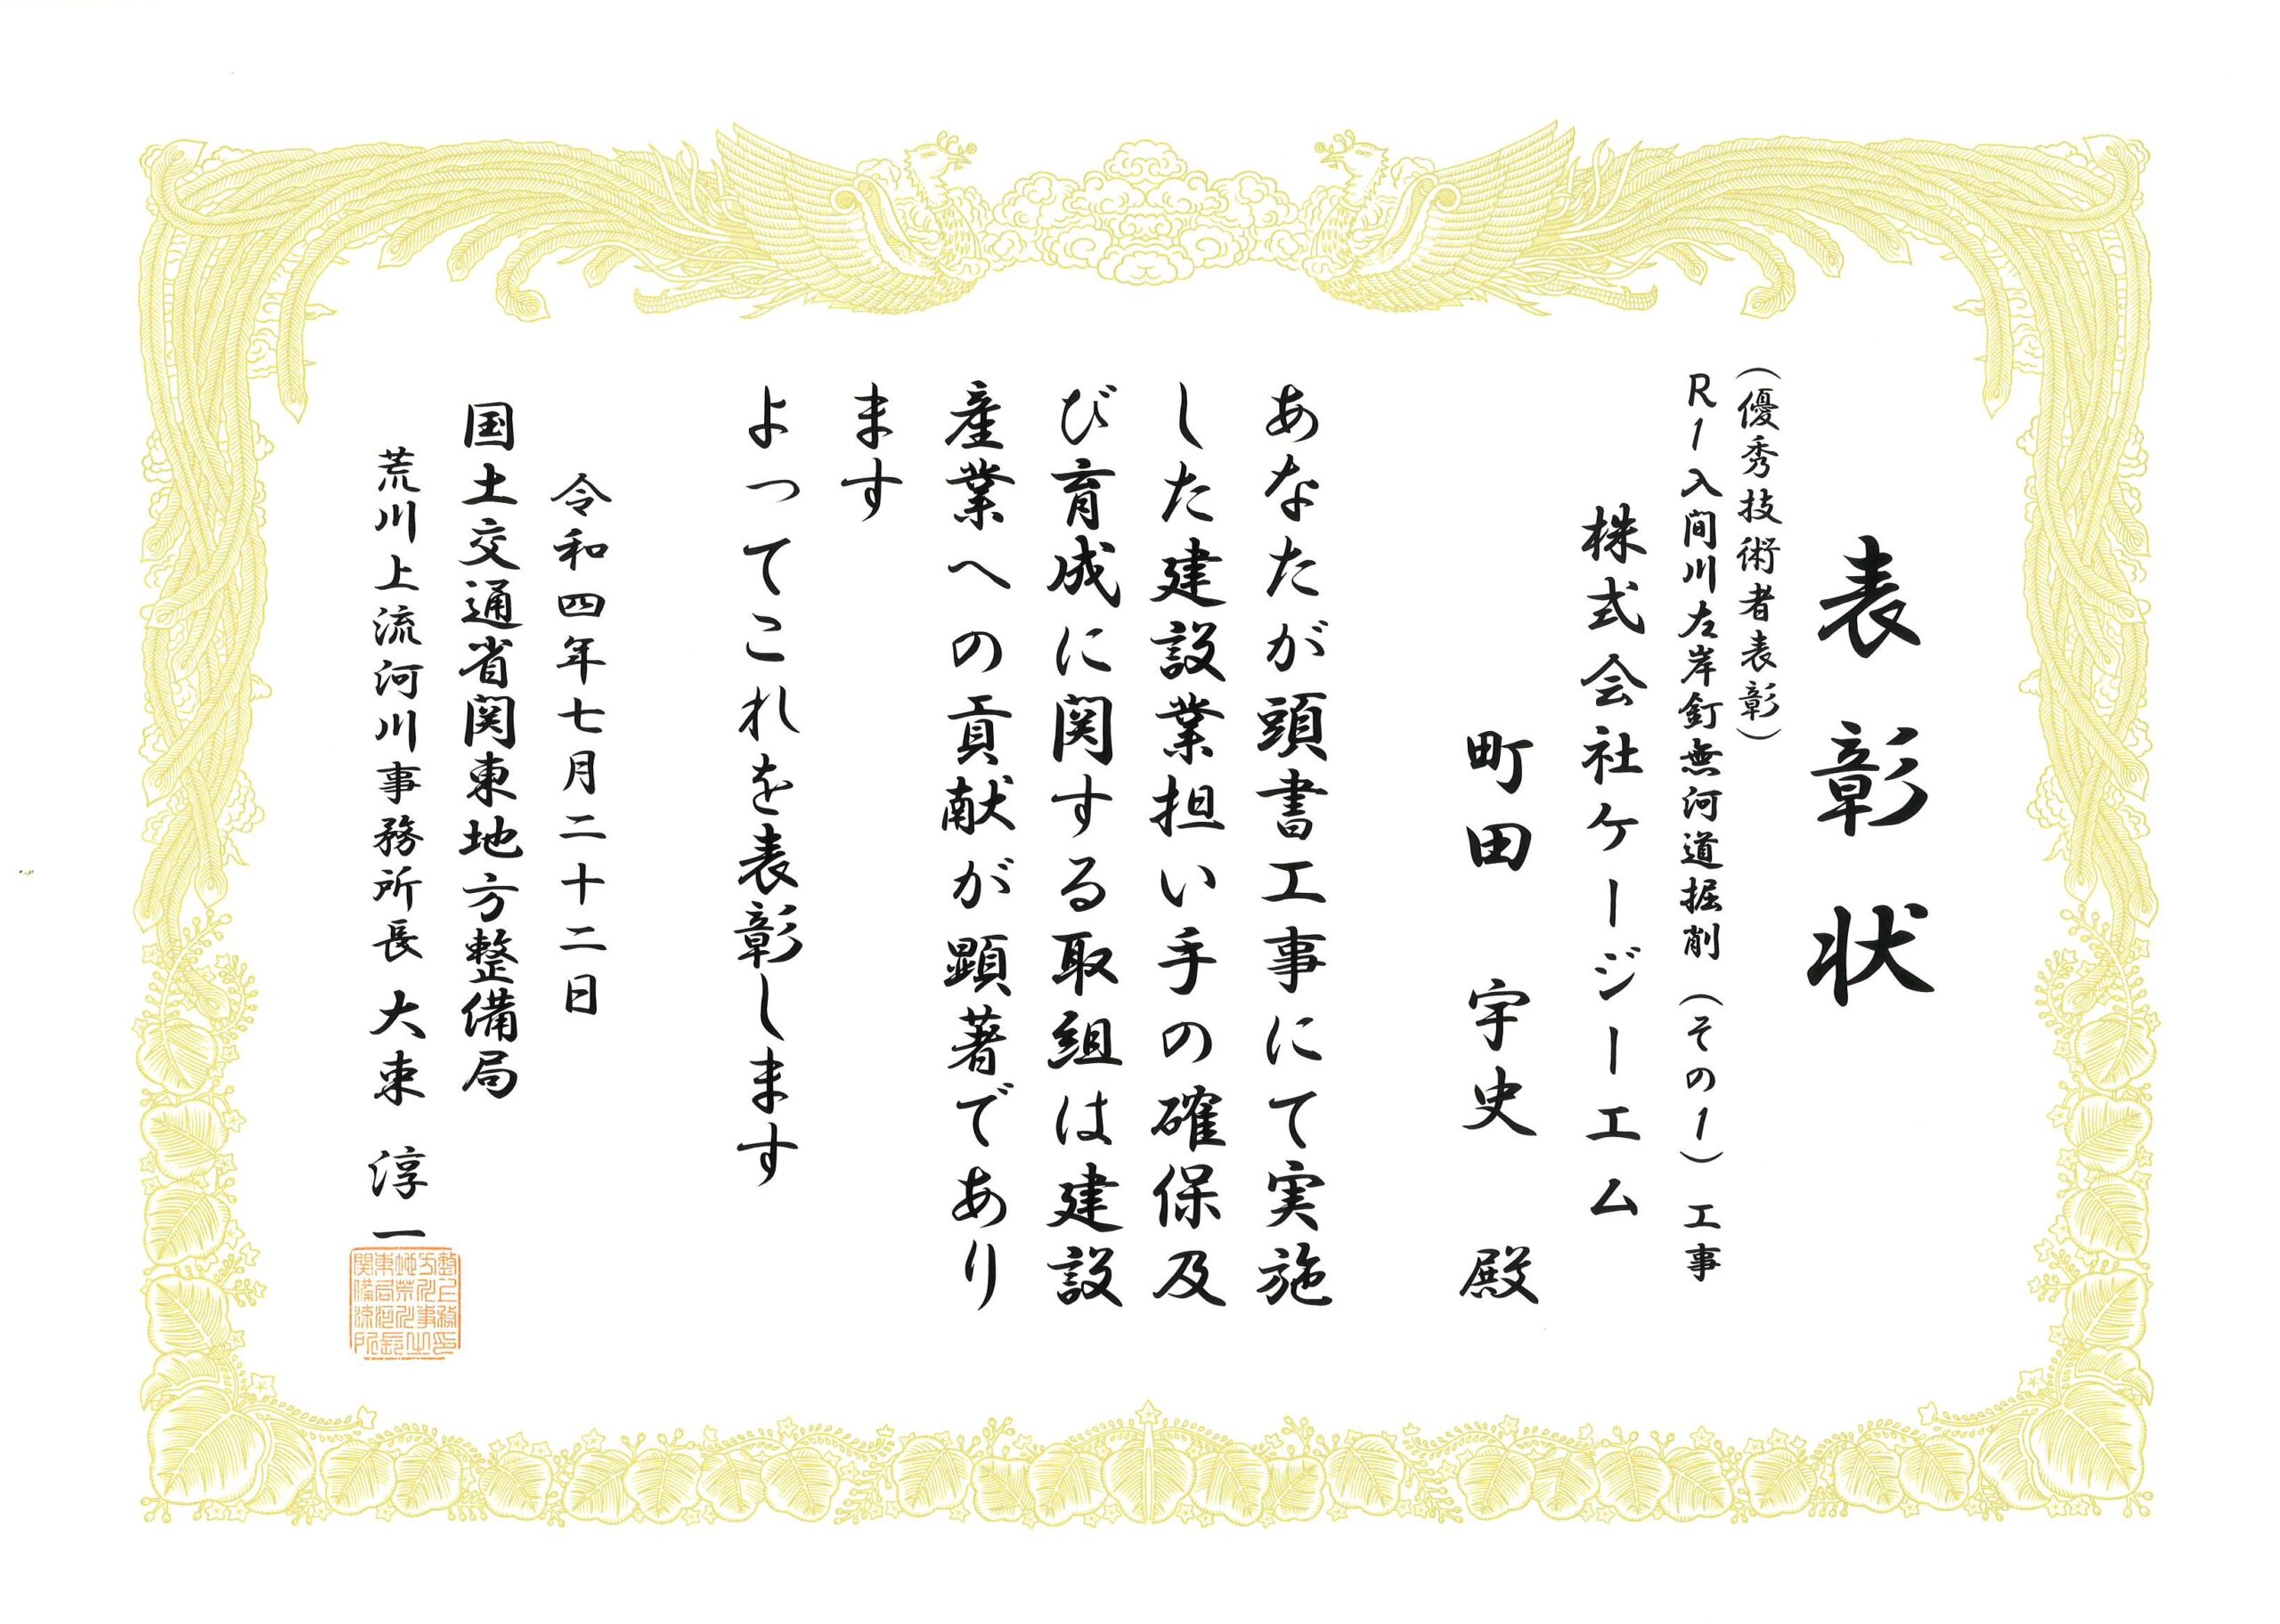 表彰状
（優秀技術者表彰）
R1入間川左岸釘無河道掘削（その1）工事
株式会社ケージーエム
町田 宇史 殿
あなたが頭書工事にて実施
した建設業担い手の確保及
び育成に関する取組は建設
産業への貢献が顕著であり
ます
よってこれを表彰します
令和四年七月二十二日
国土交通省関東地方整備局
荒川上流河川事務所長 大束 淳一